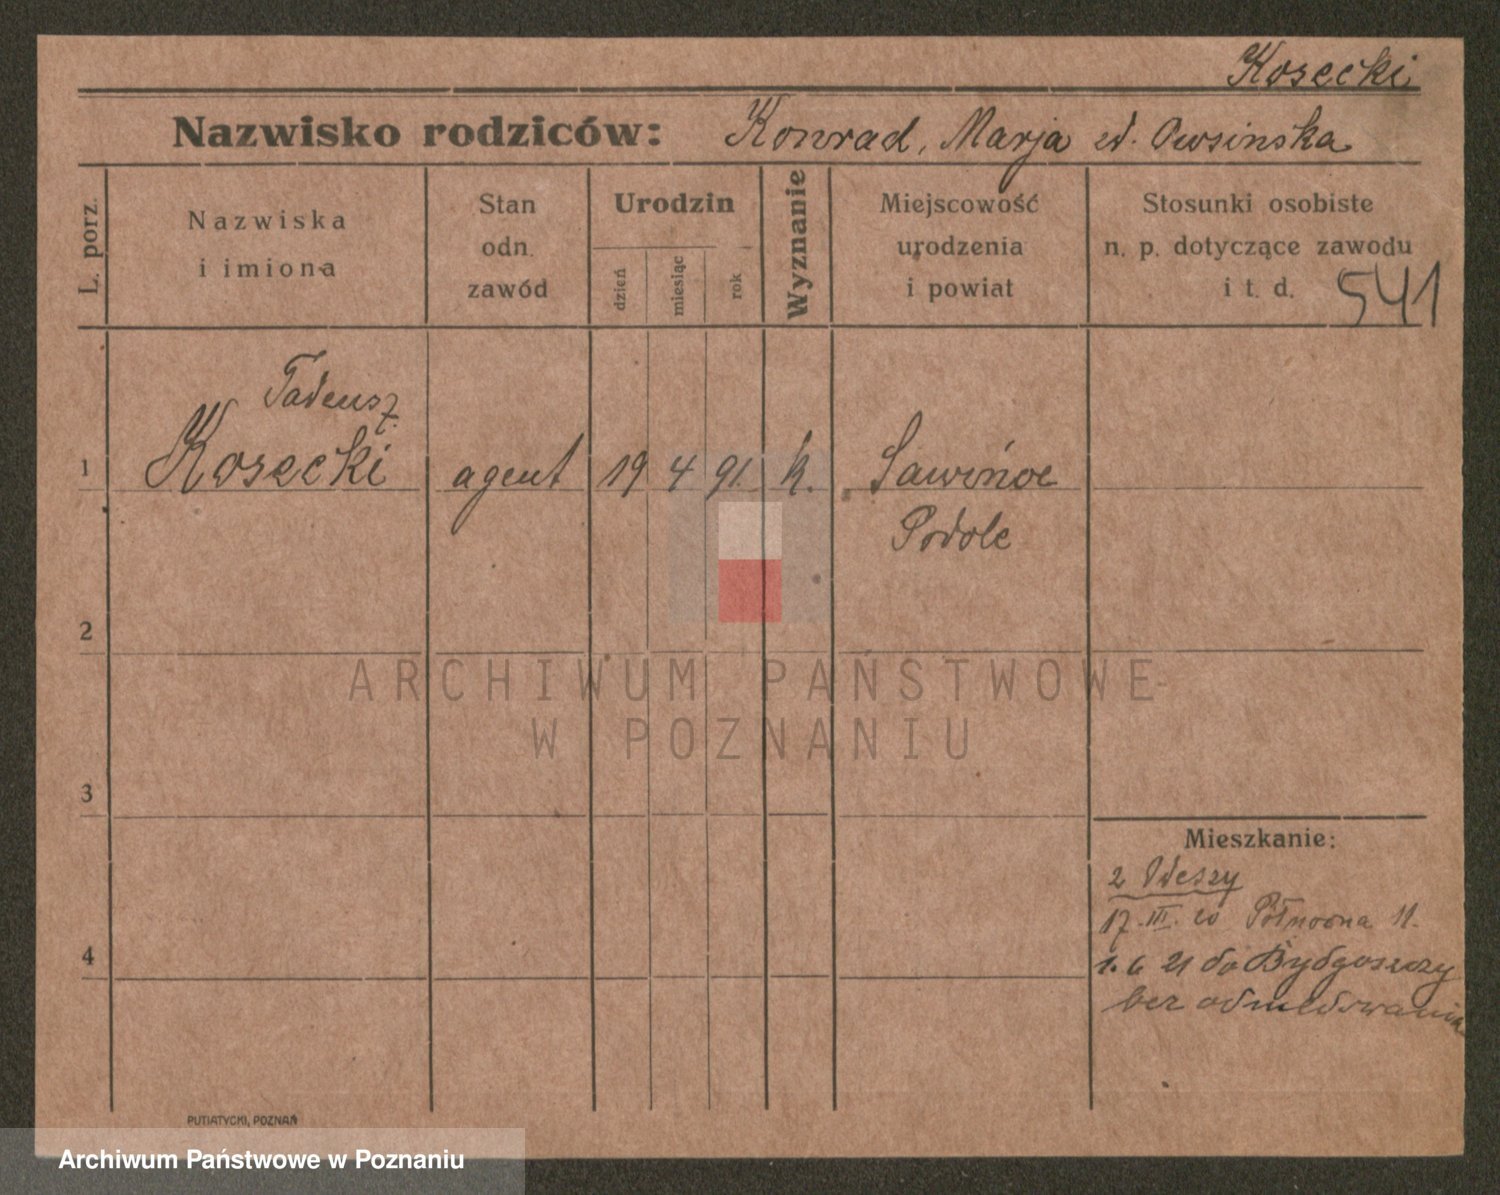 Kosecki
Nazwisko rodziców: Konrad, Marja zd. Owsinska
L. porz.
Nazwiska
i imiona
Stan
odn.
zawód
Urodzin
dzień
miesiąc
rok
Wyznanie
Miejscowość
urodzenia
i powiat
Stosunki osobiste
n. p. dotyczące zawodu
i t. d. 541
Tadeusz
1 Kosecki agent 19 4 91. k.
Podole
2
3
4
Mieszkanie:
17. III. 20 Północna 11.
1. 6 21 do Bydgoszczy
bez odmeldowania
PUTIATYCKI, POZNAŃ
ARCHIWUM PAŃSTWOWE
W POZNANIU
Archiwum Państwowe w Poznaniu